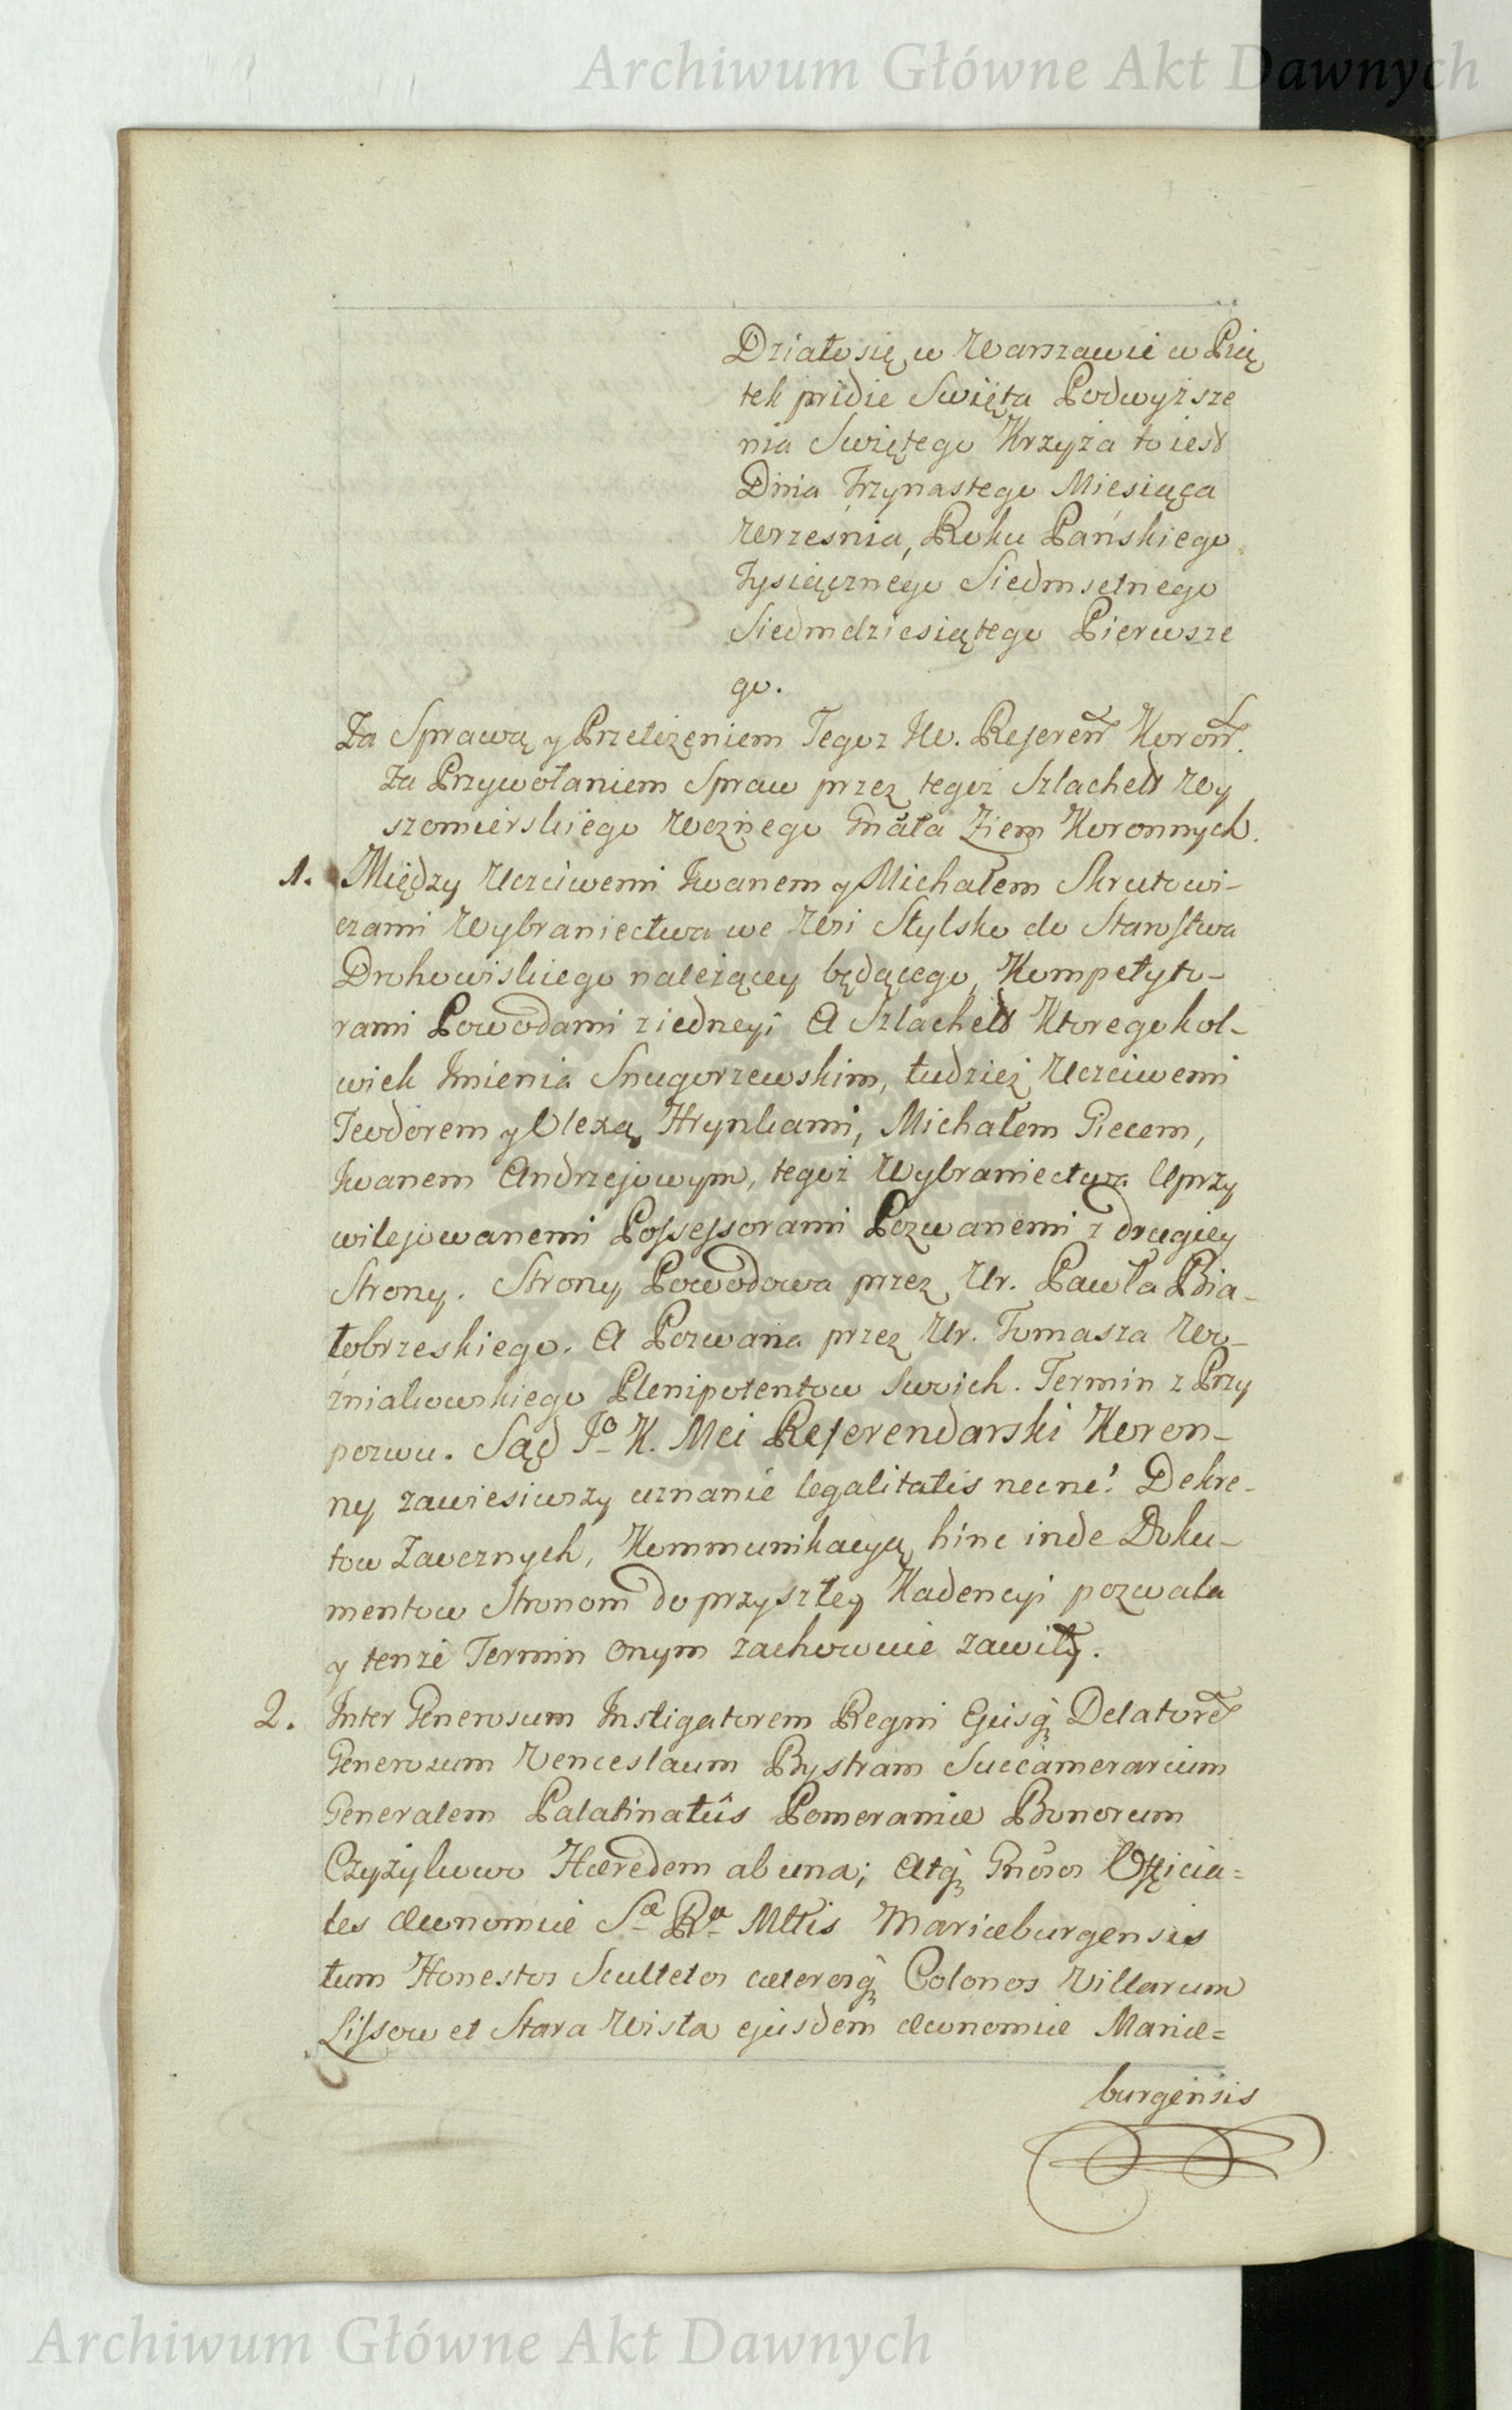 Archiwum Główne Akt Dawnych
Działo się w Warszawie w Pią
tek pridie Swięta Podwyższe
nia Swiętego Krzyża to iest
Dnia Trzynastego Miesiąca
Września, Roku Pańskiego
Tysiącznego Siedmsetnego
Siedmdziesiątego Pierwsze
go.
Za Sprawą y Przełożeniem Tegoż JW. Referen̄ Koron̄.
Za Przywołaniem Spraw przez tegoż Szlachet Wy
szomierskiego Woznego Gn̄ała Ziem Koronnych.
1. Między Uczciwemi Iwanem y Michałem Skrutowi-
czami Wybraniectwa we Wsi Stylsko do Starostwa
Drohowiskiego należącey będącego, Kompetyto-
rami Powodami z iedney; A Szlachet Ktoregokol-
wiek Imienia Snugorzewskim, tudzież Uczciwemi
Teodorem y Olexą Hrynkami, Michałem Giecem,
Iwanem Andrzejowym, tegoż Wybraniectwa Uprzy
wilejowanemi Possessorami Pozwanemi z drugiey
Strony. Strony Powodowa przez Ur. Pawła Bia-
łobrzeskiego. A Pozwana przez Ur. Tomasza Wo-
źniakowskiego Plenipotentow Swoich. Termin z Przy
pozwu. Sąd Jº K. Mci Referendarski Koron-
ny zawiesiwszy uznanie legalitatis necne! Dekre-
tow Zaocznych, Kommunikacyą hinc inde Doku-
mentow Stronom do przyszłey Kadencyi pozwala
y tenże Termin onym zachowuie zawity.
2. Inter Generosum Instigatorem Regni Ejusq̨ Delatorē
Generosum Venceslaum Bystram Succamerarium
Generalem Palatinatûs Pomeraniæ Bonorum
Czyżykowo Hæredem ab una; Atq̨ Gn̄osos Officia=
les Œconomiæ Sæ Ræ Mttis Mariæburgensis
tum Honestos Scultetos cæterosq̨ Colonos Villarum
Lissow et Stara Wisła ejusdem Œconomiæ Mariæ=
burgensis
Archiwum Główne Akt Dawnych